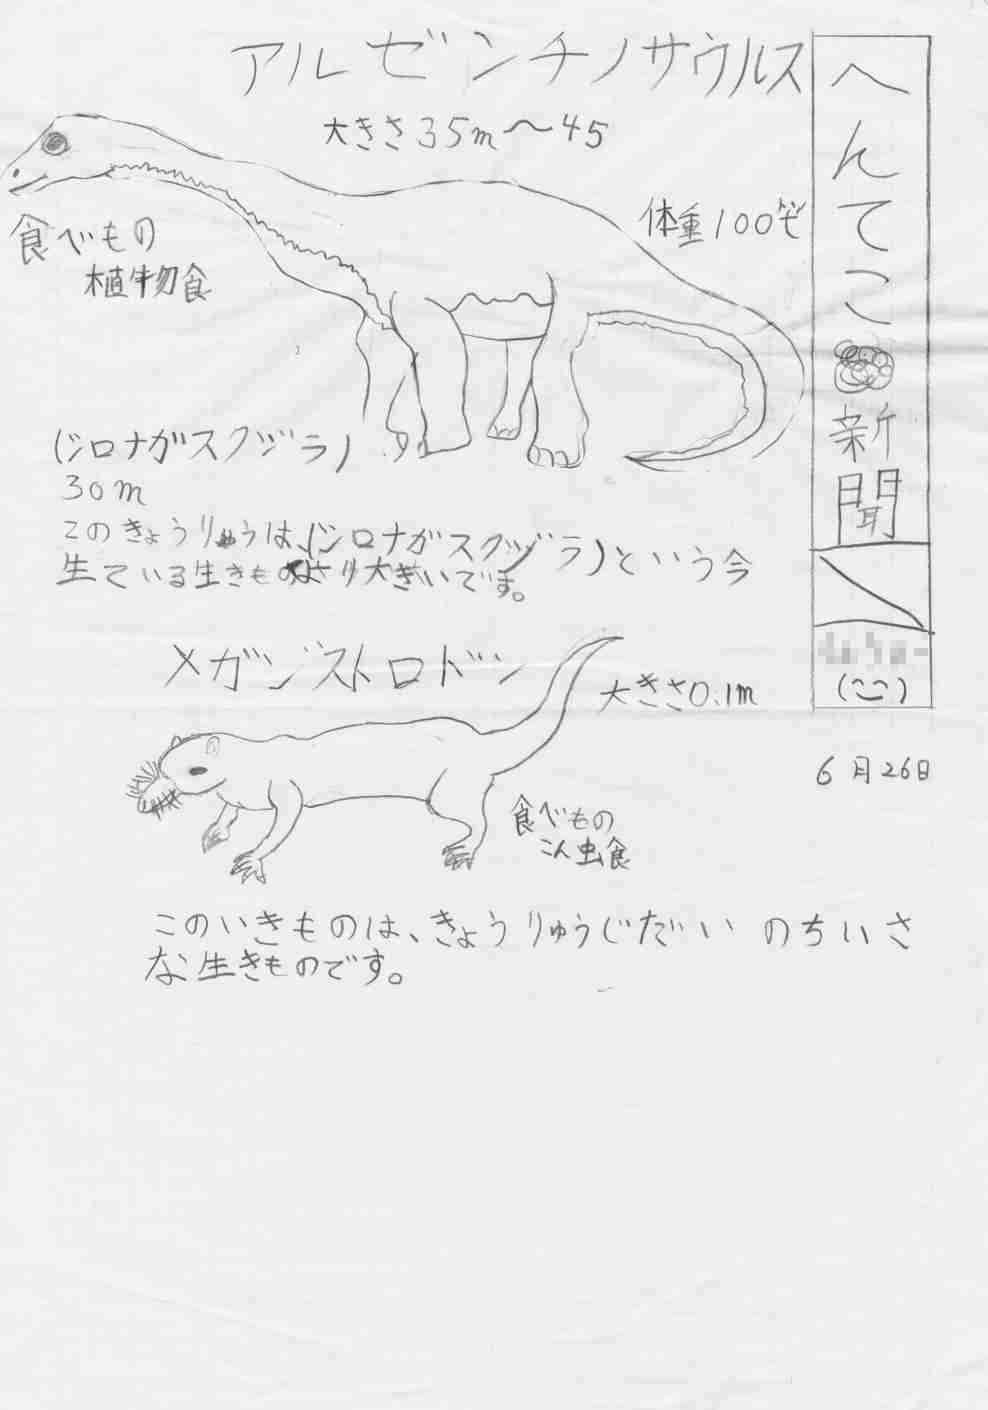 へんてこ新聞
6月26日
アルゼンチノサウルス
大きさ35m〜45
体重100㌧
食べもの
植物食
(シロナガスクジラ)
30m
このきょうりゅうは、(シロナガスクジラ)という今
生ている生きものより大きいです。
メガゾストロドン
大きさ0.1m
食べもの
こん虫食
このいきものは、きょうりゅうじだいのちいさ
な生きものです。